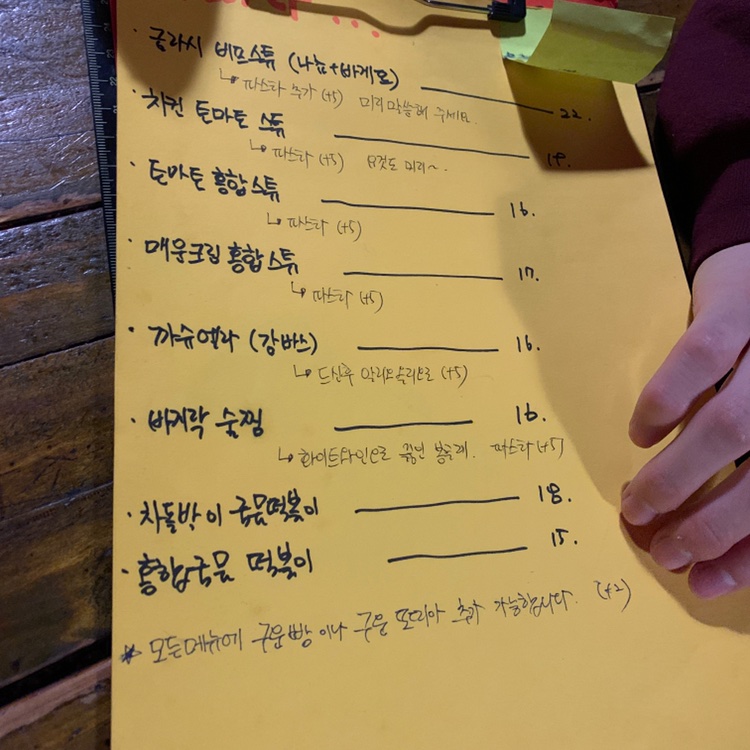 · 굴라시 비프스튜 (나쵸+바게트) 22.
↳ 파스타 추가 (+5) 미리 말씀해 주세요.
· 치킨 토마토 스튜 19.
↳ 파스타 (+5) 요것도 미리~.
· 토마토 홍합스튜 16.
↳ 파스타 (+5)
· 매운크림 홍합스튜 17.
↳ 파스타 (+5)
· 까슈엘라 (감바스) 16.
↳ 드신후 알리오올리오로 (+5)
· 바지락 술찜 16.
↳ 화이트와인으로 끓인 봉골레. 파스타 (+5)
· 차돌박이 국물떡볶이 18.
· 홍합국물 떡볶이 15.
* 모든메뉴에 구운빵 이나 구운 또띠아 추가 가능합니다. (+2)